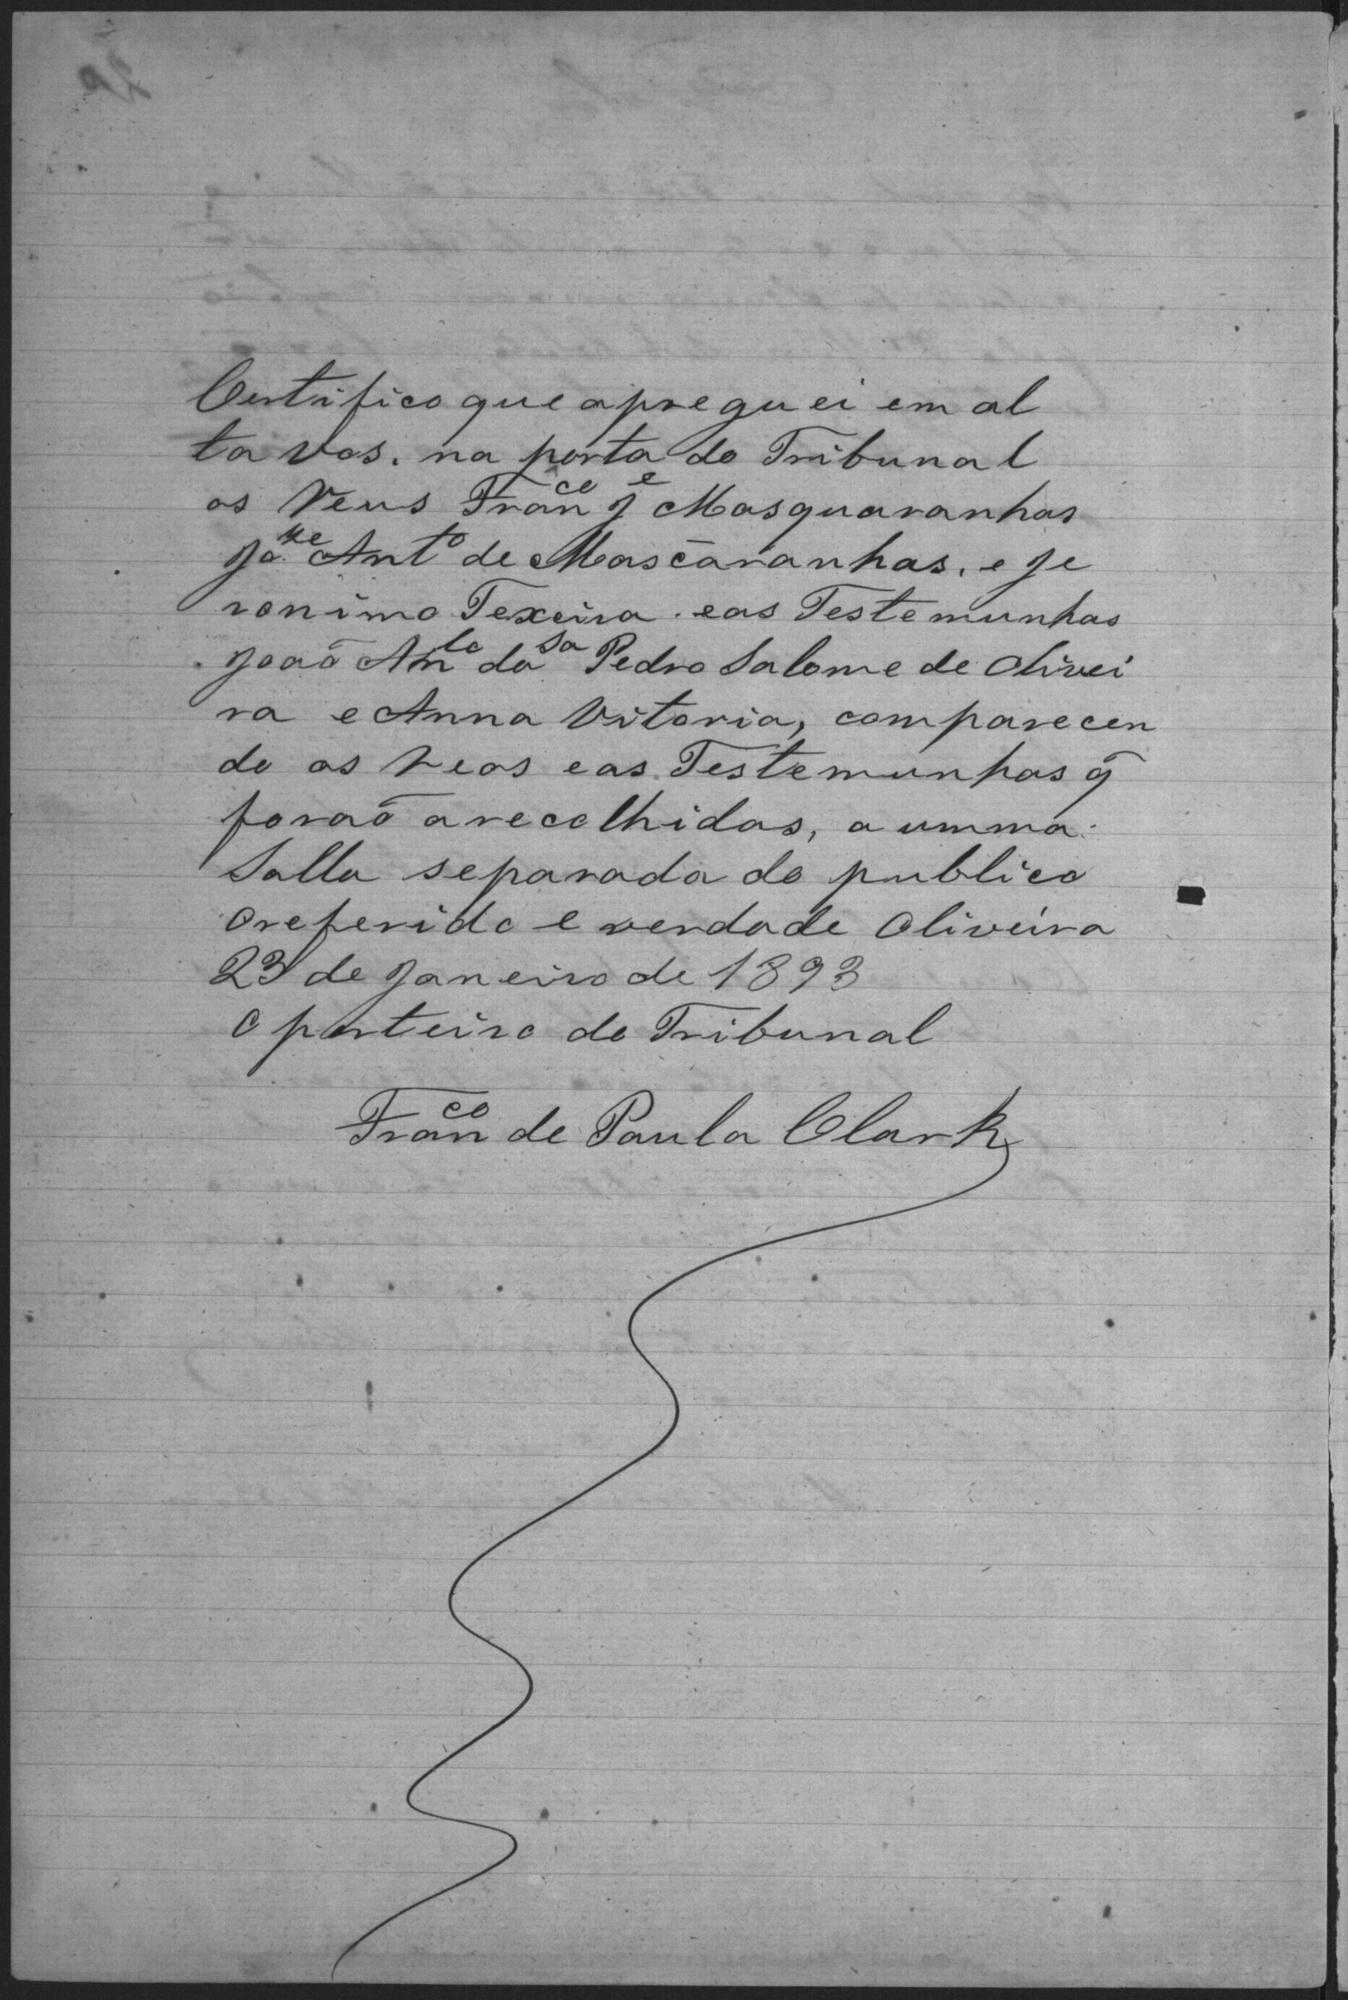 Certifico que apreguei em al
ta vos. na porta do Tribunal
os Reus Fran.co J.e Masquaranhas
Jo.se Ant.o de Mascaranhas, e Je
ronimo Texeira. eas Testemunhas
João An.to da S.a Pedro Salome de Olivei
ra e Anna Vitoria, comparecen
do os Reos eas Testemunhas q̃
forão arecolhidas, a umma
Salla separada do publico
oreferido e verdade Oliveira
23 de Janeiro de 1893
O porteiro do Tribunal
Fran.co de Paula Clark